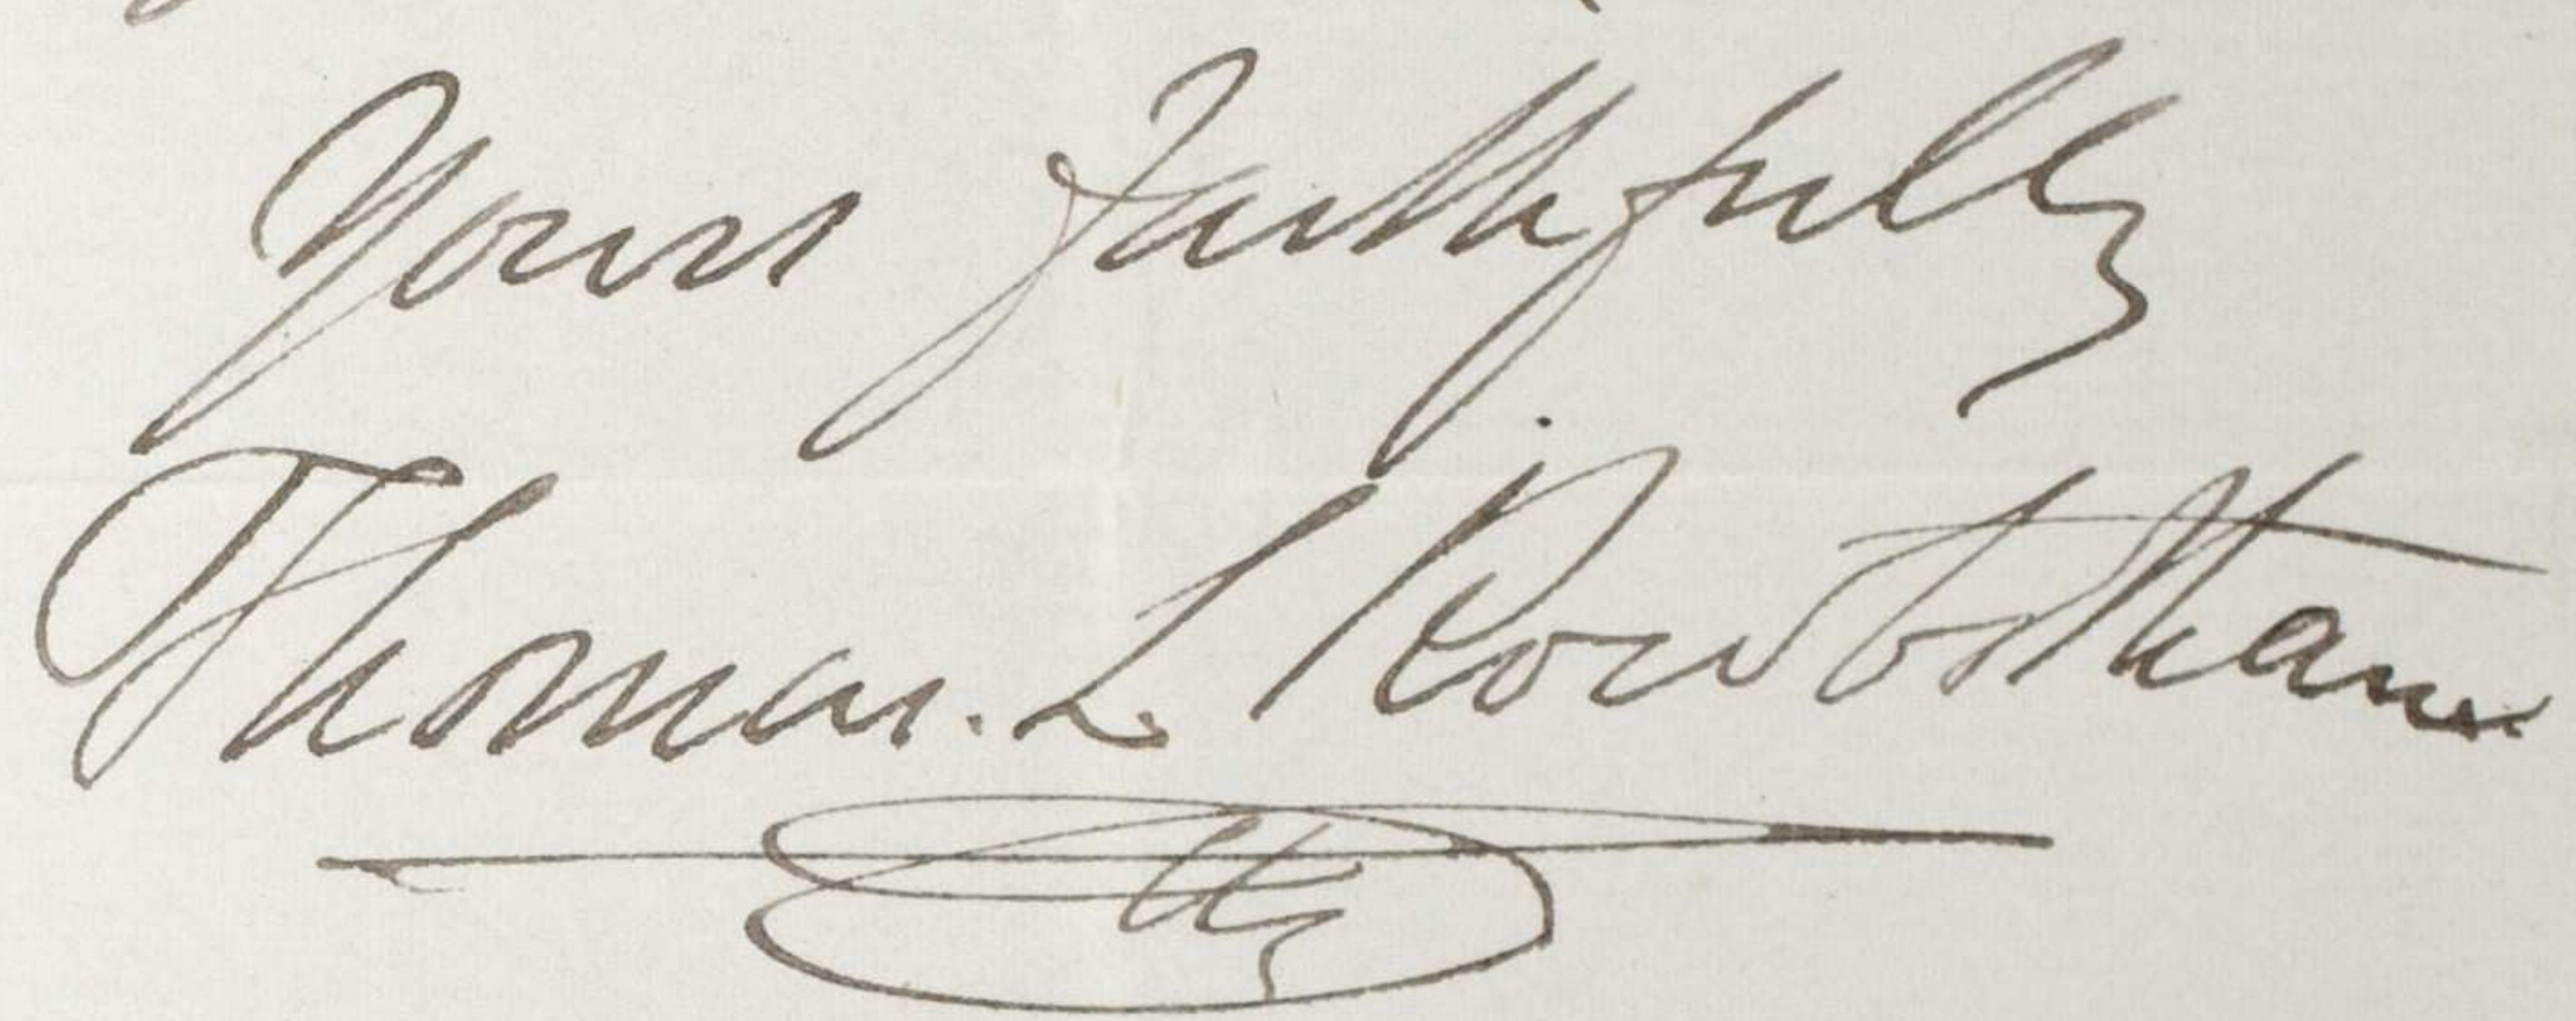 Yours faithfully
Thomas. L Rowbotham